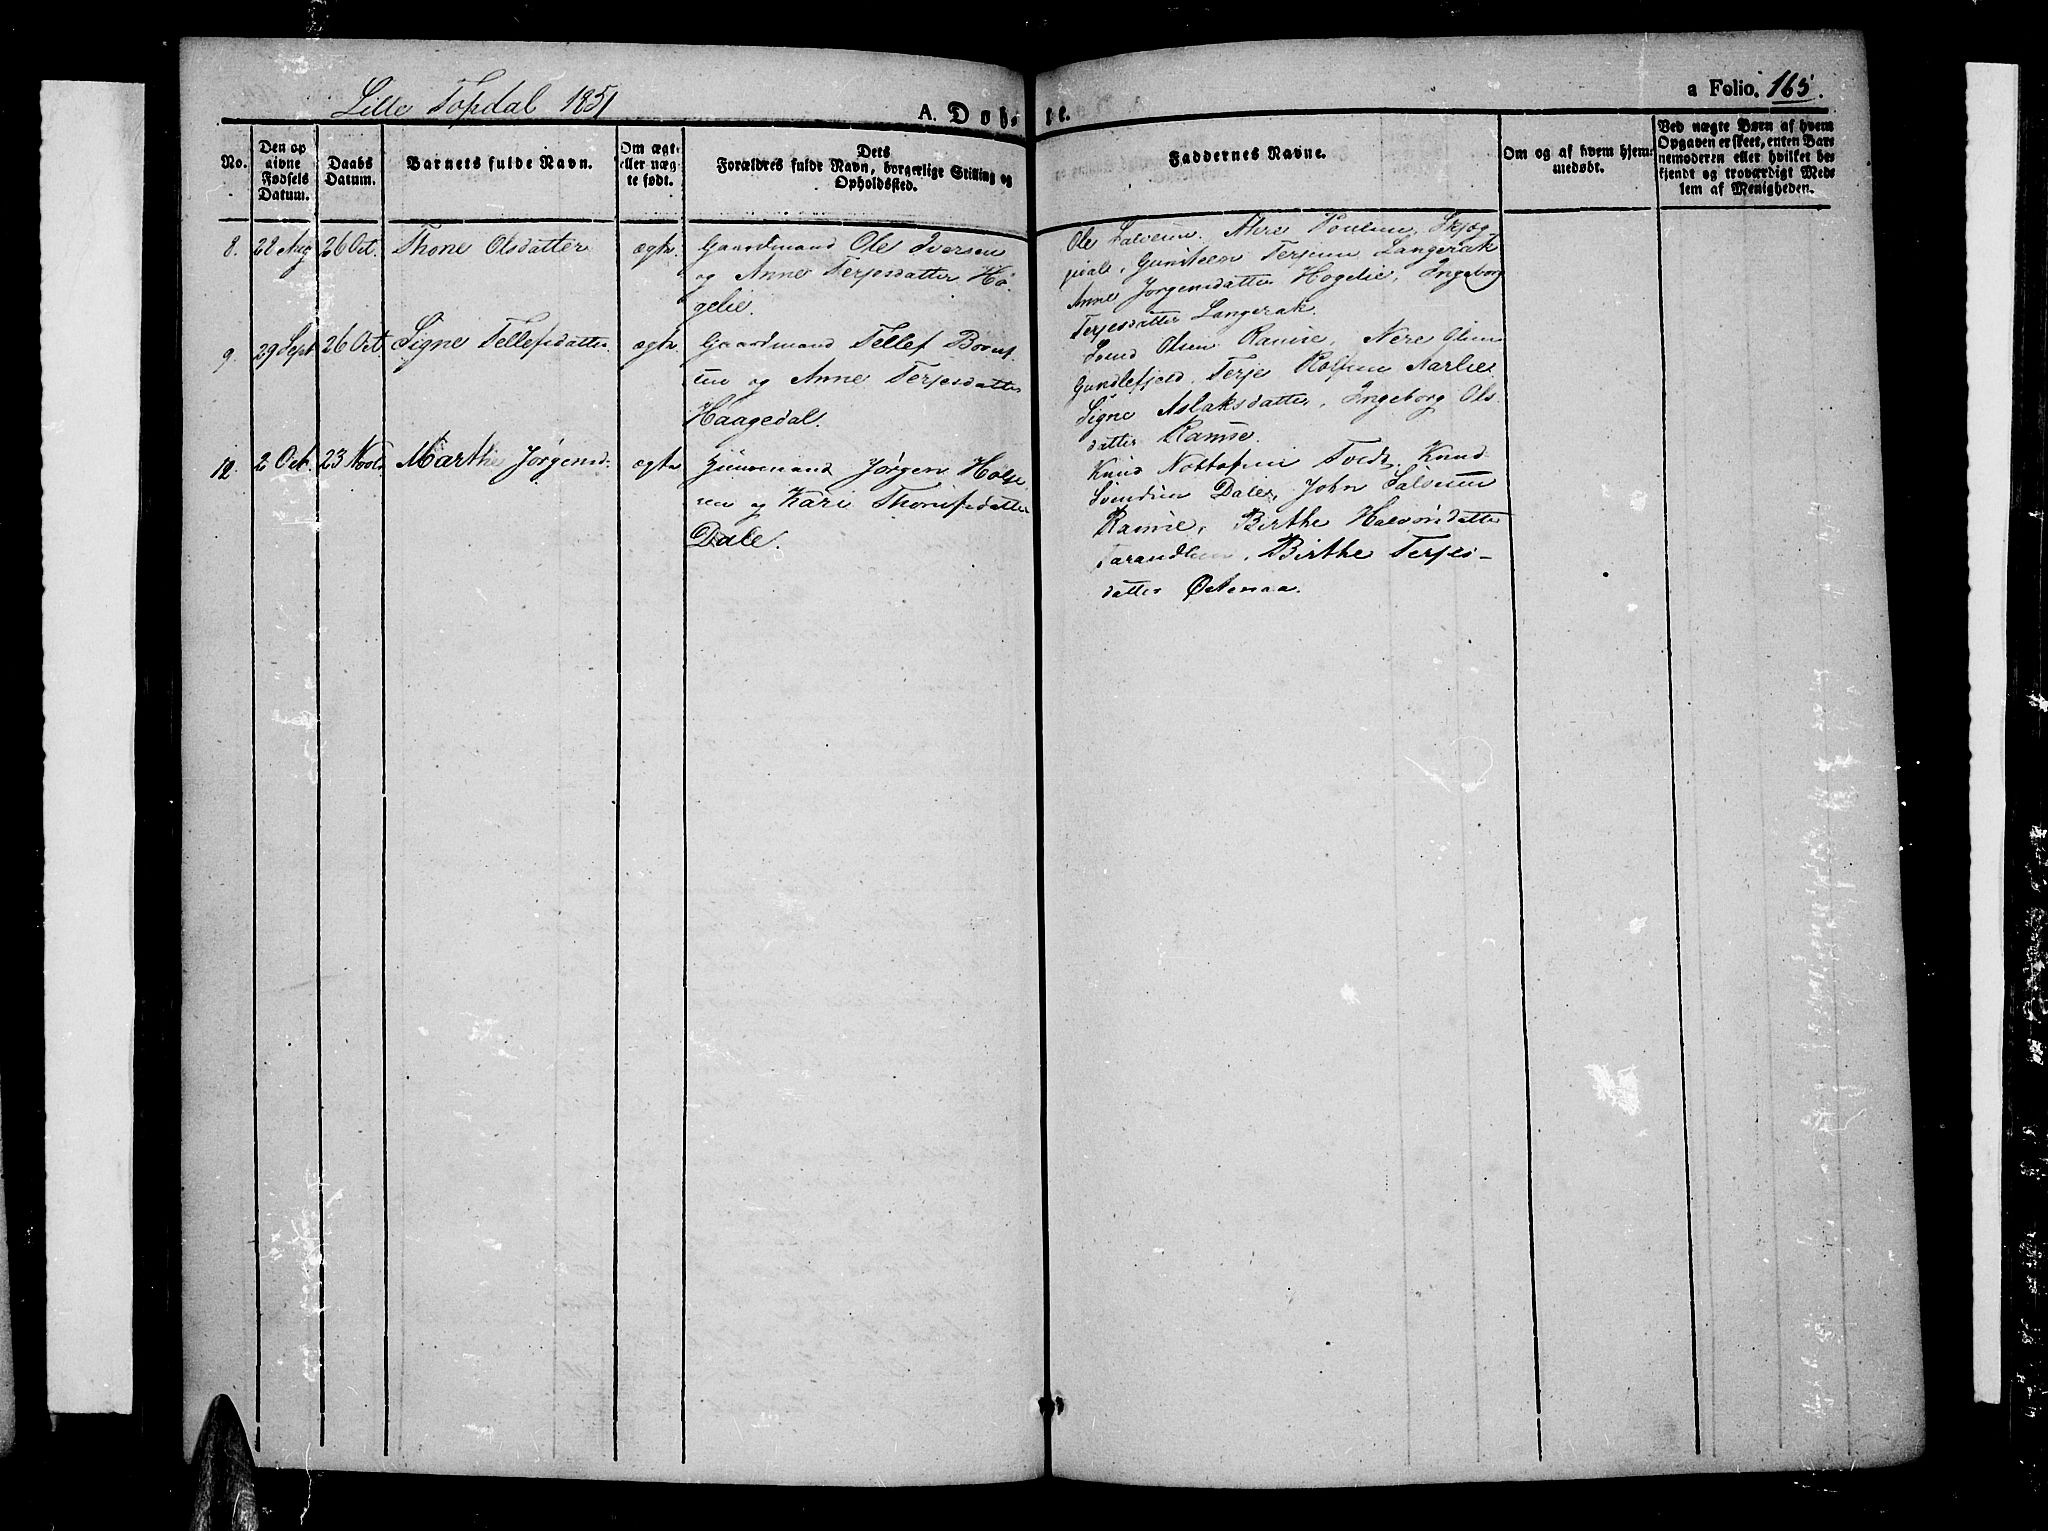 Lille Topdal 1851
A. Døbte.
a Folio. 165.
No.
Den op
givne
Fødsels
Datum.
Daabs
Datum.
Barnets fulde Navn.
Om ægte
eller uæg
te født.
Dets
Forældres fulde Navn, borgerlige Stilling og
Opholdssted.
Faddernes Navne.
Om og af hvem hjem-
medøbt.
Ved uægte Børn af hvem
Opgaven er skeet, enten Bar-
nemoderen eller hvilket be-
kjendt og troværdigt Med-
lem af Menigheden.
8. 28 Aug 26 Oct. Thone Olsdatter ægte.
Gaardmand Ole Iversen
og Anne Terjesdatter Hø-
gelie.
Ole Salvesen. Poulsen, Skjæg-
Gunsteen Terjesen Langerak
Anne Jørgensdatter Høgelie, Ingeborg
Terjesdatter Langerak.
9. 29 Sept 26 Oct Signe Tellefsdatter ægte.
Gaardmand Tellef
og Anne Terjesdatter
Haagedal.
Svend Olsen Ramse, Nere Olsen
Gundlefjeld, Terje Rolfsen Aarlie
Signe Aslaksdatter, Ingeborg Ols
datter Ramse.
12. 2 Oct. 23 Novb Marthe Jørgensd. ægte
Jørgen
og Kari
Dale.
Knud Tvedt, Knud
Svendsen Dale, John Salvesen
Ramse, Birthe Halvorsdatter
Birthe Terjes-
datter